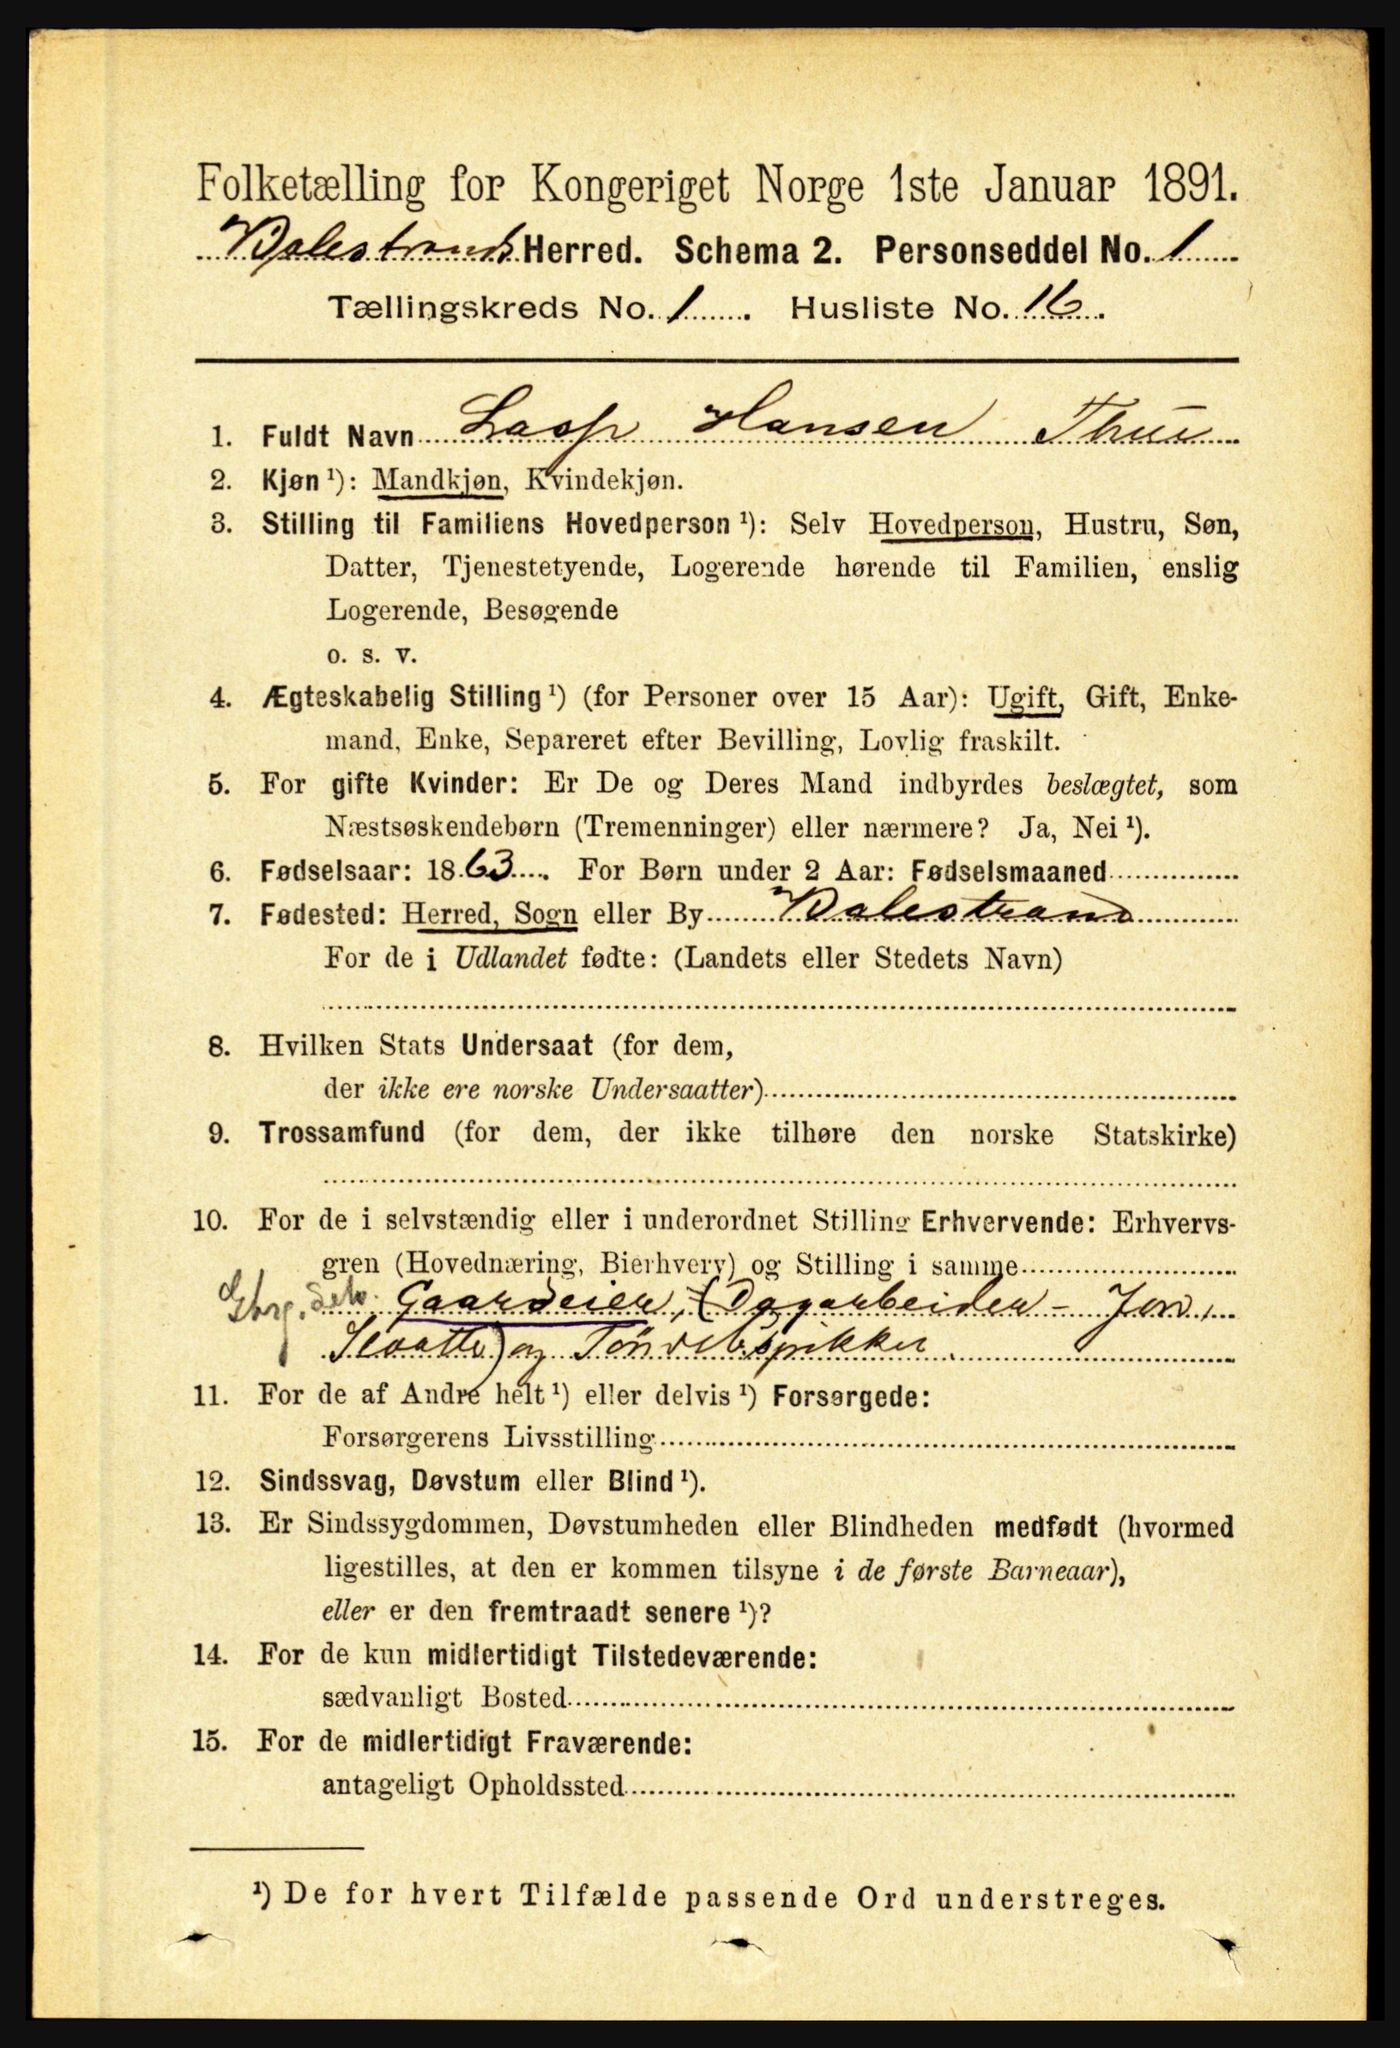 Folketælling for Kongeriget Norge 1ste Januar 1891.
Balestrand Herred. Schema 2. Personseddel No. 1
Tællingskreds No. 1. Husliste No. 16.
1. Fuldt Navn Lasse Hansen Thue
2. Kjøn ¹): Mandkjøn, Kvindekjøn.
3. Stilling til Familiens Hovedperson ¹): Selv Hovedperson, Hustru, Søn,
Datter, Tjenestetyende, Logerende hørende til Familien, enslig
Logerende, Besøgende
o. s. v.
4. Ægteskabelig Stilling ¹) (for Personer over 15 Aar): Ugift, Gift, Enke-
mand, Enke, Separeret efter Bevilling, Lovlig fraskilt.
5. For gifte Kvinder: Er De og Deres Mand indbyrdes beslægtet, som
Næstsøskendebørn (Tremenninger) eller nærmere? Ja, Nei ¹).
6. Fødselsaar: 1863. For Børn under 2 Aar: Fødselsmaaned
7. Fødested: Herred, Sogn eller By Balestrand
For de i Udlandet fødte: (Landets eller Stedets Navn)
8. Hvilken Stats Undersaat (for dem,
der ikke ere norske Undersaatter)
9. Trossamfund (for dem, der ikke tilhøre den norske Statskirke)
10. For de i selvstændig eller i underordnet Stilling Erhvervende: Erhvervs-
gren (Hovednæring, Bierhverv) og Stilling i samme
Gaardeier, (Dagarbeider - Jord,
Slaatte) og Tøndebspikker.
11. For de af Andre helt ¹) eller delvis ¹) Forsørgede:
Forsørgerens Livsstilling
12. Sindssvag, Døvstum eller Blind ¹).
13. Er Sindssygdommen, Døvstumheden eller Blindheden medfødt (hvormed
ligestilles, at den er kommen tilsyne i de første Barneaar),
eller er den fremtraadt senere ¹)?
14. For de kun midlertidigt Tilstedeværende:
sædvanligt Bosted
15. For de midlertidigt Fraværende:
antageligt Opholdssted
¹) De for hvert Tilfælde passende Ord understreges.